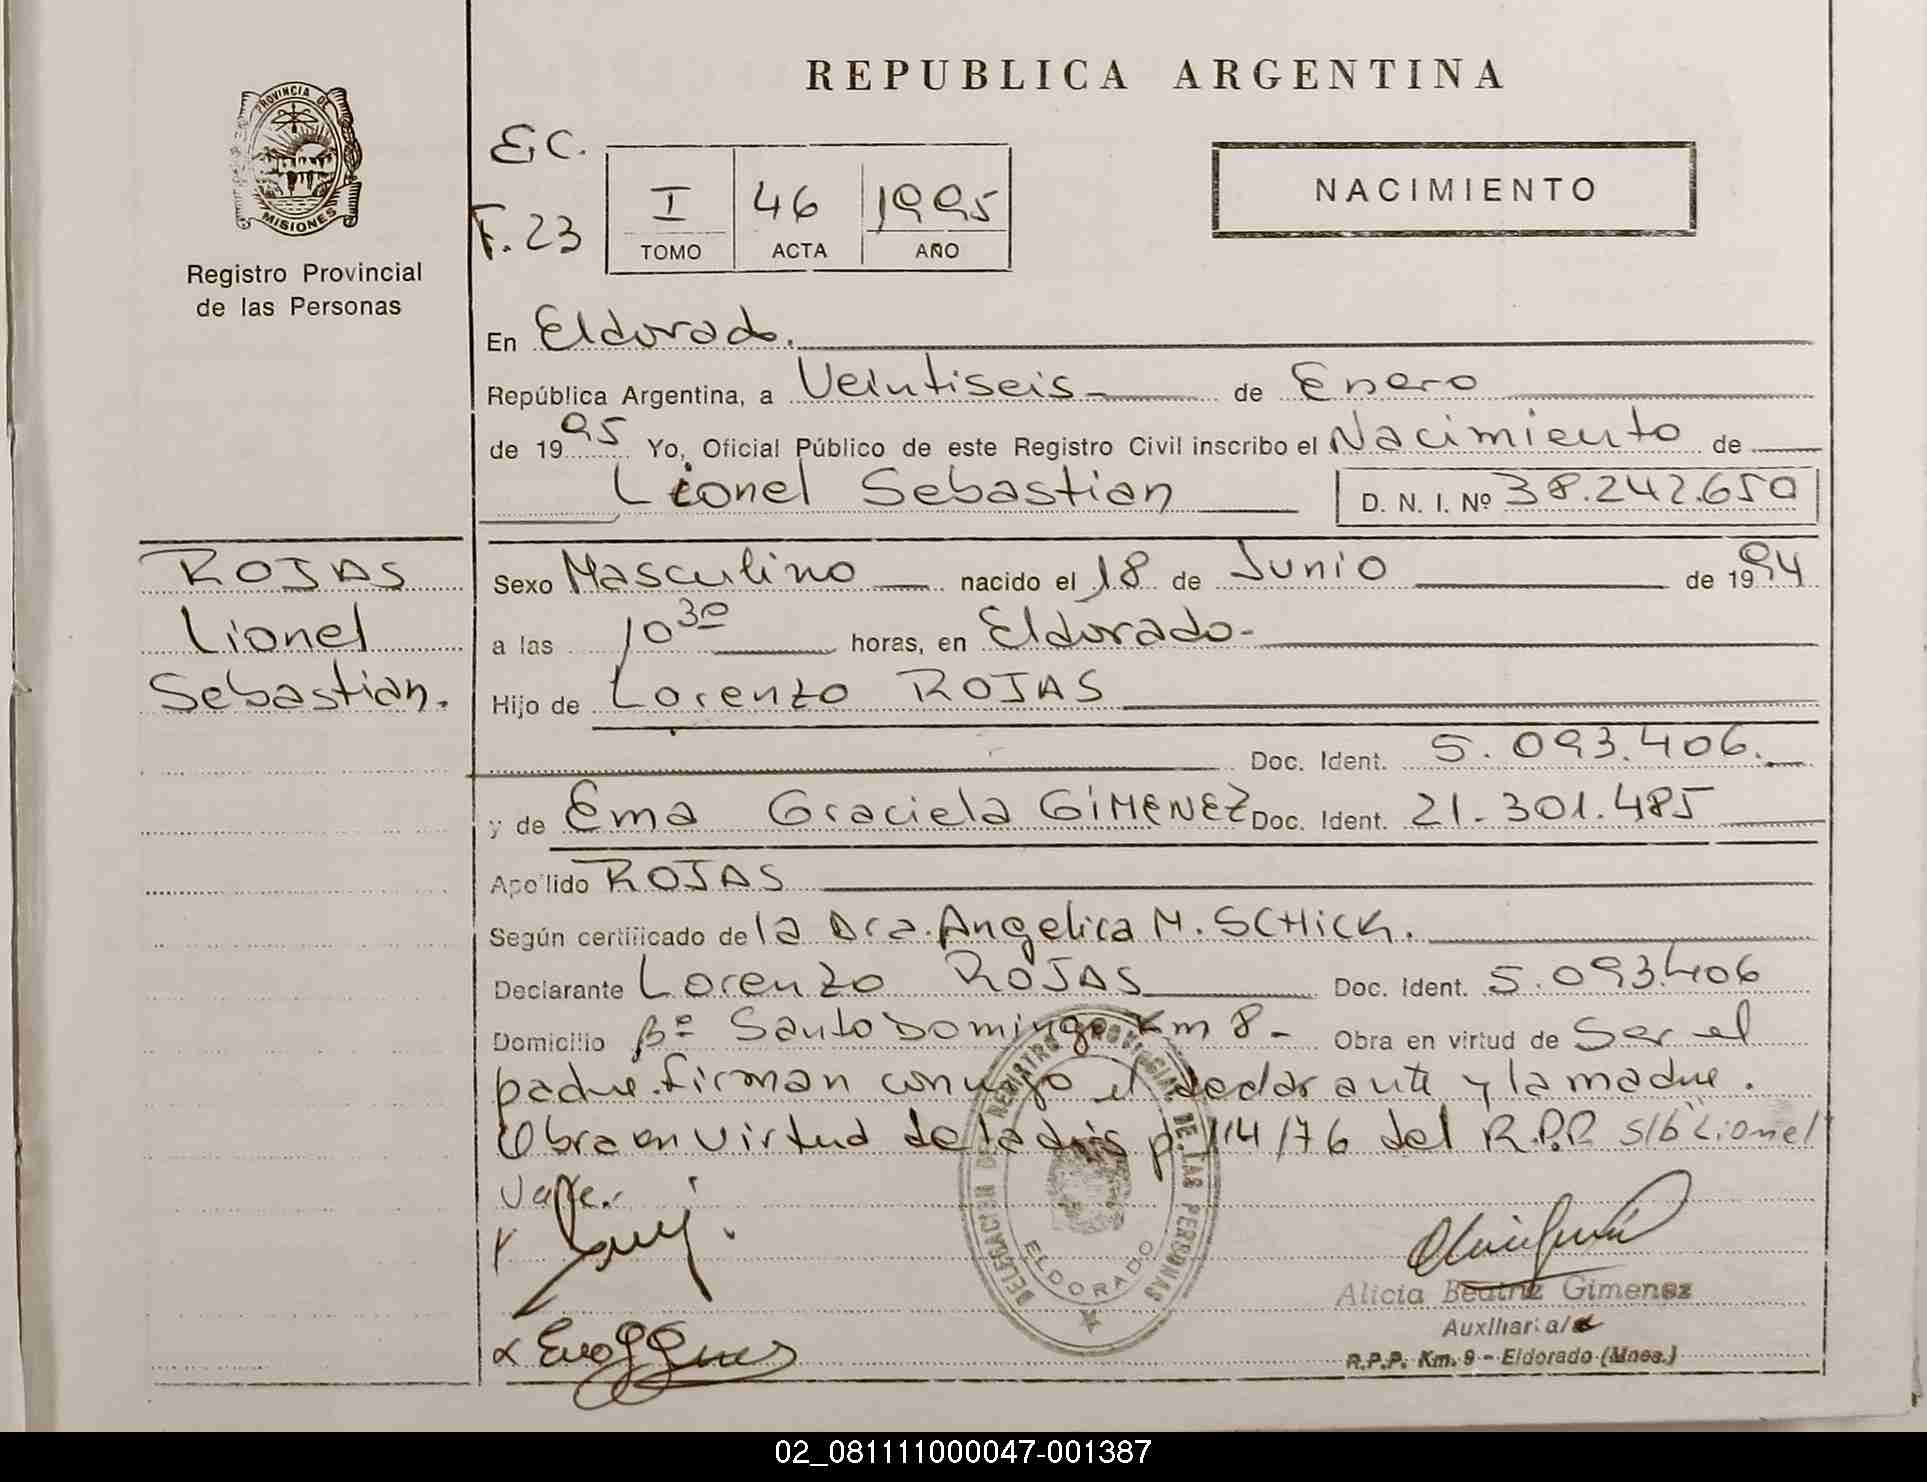 REPUBLICA ARGENTINA
PROVINCIA DE MISIONES
Registro Provincial
de las Personas
E.C.
F. 23
I 46 1995
TOMO ACTA AÑO
NACIMIENTO
En Eldorado.
República Argentina, a Veintiseis de Enero
de 1995 Yo, Oficial Público de este Registro Civil inscribo el Nacimiento de
Lionel Sebastian D. N. I. Nº 38.242.650
ROJAS
Lionel
Sebastian.
Sexo Masculino nacido el 18 de Junio de 1994
a las 10 30 horas, en Eldorado-
Hijo de Lorenzo ROJAS
Doc. Ident. 5.093.406.
y de Ema Graciela GiMENEZ Doc. Ident. 21.301.485
Apellido ROJAS
Según certificado de la Dra. Angelica M. SCHiCK.
Declarante Lorenzo ROJAS Doc. Ident. 5.093.406
Domicilio Bº Santo Domingo Km 8- Obra en virtud de Ser el
padre. firman conmigo el declarante y la madre.
Obra en virtud de la disp. 114/76 del R.P.P. s/b "Lionel"
Vale.
DELEGACION DE REGISTRO PROVINCIAL DE LAS PERSONAS
ELDORADO
Alicia Beatriz Gimenez
Auxiliar a/c
R.P.P. Km. 9 - Eldorado (Mnes.)
02_081111000047-001387